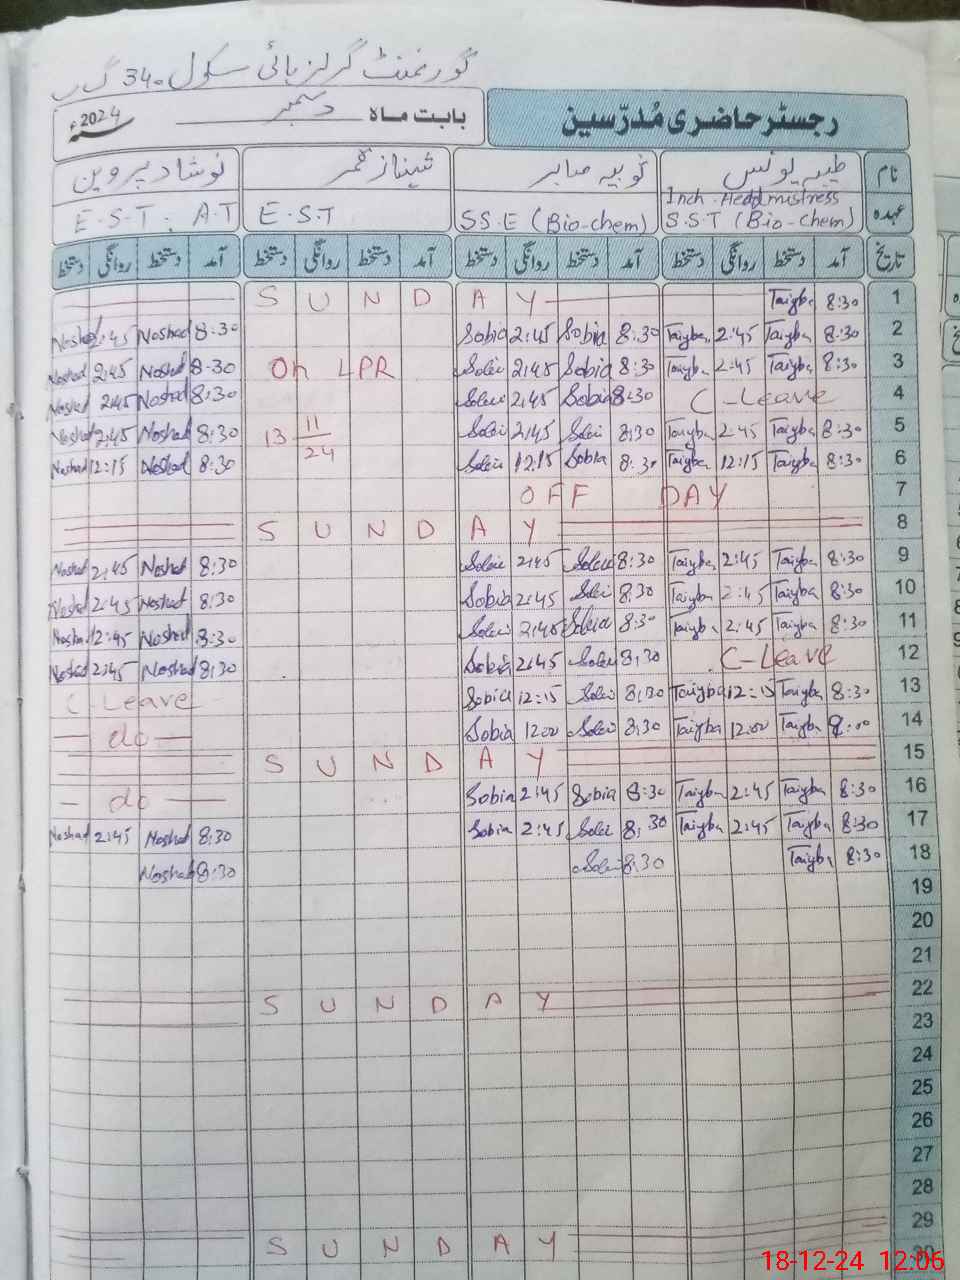 گورنمنٹ گرلز ہائی سکول 340 گ ب
رجسٹر حاضری مُدرّسین
بابت ماہ دسمبر سنہ 2024ء
نام طیبہ یونس ثوبیہ صابر شہناز قمر نوشاد پروین
عہدہ Inch. Headmistress S.S.T (Bio-chem) SS.E (Bio-chem) E.S.T E.S.T. A.T
تاریخ آمد دستخط روانگی دستخط آمد دستخط روانگی دستخط آمد دستخط روانگی دستخط آمد دستخط روانگی دستخط
1 8:30 Taiyba S U N D A Y
2 8:30 Taiyba 2:45 Taiyba 8:30 Sobia 2:45 Sobia 8:30 Noshad 2:45 Noshad
3 8:30 Taiyba 2:45 Taiyba 8:30 Sobia 2:45 On LPR 8:30 Noshad 2:45 Noshad
4 C-Leave 8:30 Sobia 2:45 8:30 Noshad 2:45 Noshad
5 8:30 Taiyba 2:45 Taiyba 8:30 2:45 13 11 8:30 Noshad 2:45 Noshad
24
6 8:30 Taiyba 12:15 Taiyba 8:30 Sobia 12:15 8:30 Noshad 12:15 Noshad
7 OFF DAY
8 S U N D A Y
9 8:30 Taiyba 2:45 Taiyba 8:30 2:45 8:30 Noshad 2:45 Noshad
10 8:30 Taiyba 2:45 Taiyba 8:30 2:45 Sobia 8:30 Noshad 2:45 Noshad
11 8:30 Taiyba 2:45 Taiyba 8:30 2:45 8:30 Noshad 2:45 Nosha
12 C-Leave 8:30 2:45 Sobia 8:30 Noshad 2:45 Noshad
13 8:30 Taiyba 12:15 Taiyba 8:30 12:15 Sobia C Leave
14 Taiyba 12:00 Taiyba 8:30 12:00 Sobia — do —
15 S U N D A Y
16 8:30 Taiyba 2:45 Taiyba 8:30 Sobia 2:45 Sobia — do —
17 8:30 Taiyba 2:45 Taiyba 8:30 2:45 Sobia 8:30 Noshad 2:45 Noshad
18 8:30 Taiyba 8:30 8:30 Noshad
19
20
21
22 S U N D A Y
23
24
25
26
27
28
29 S U N D A Y
30
18-12-24 12:06